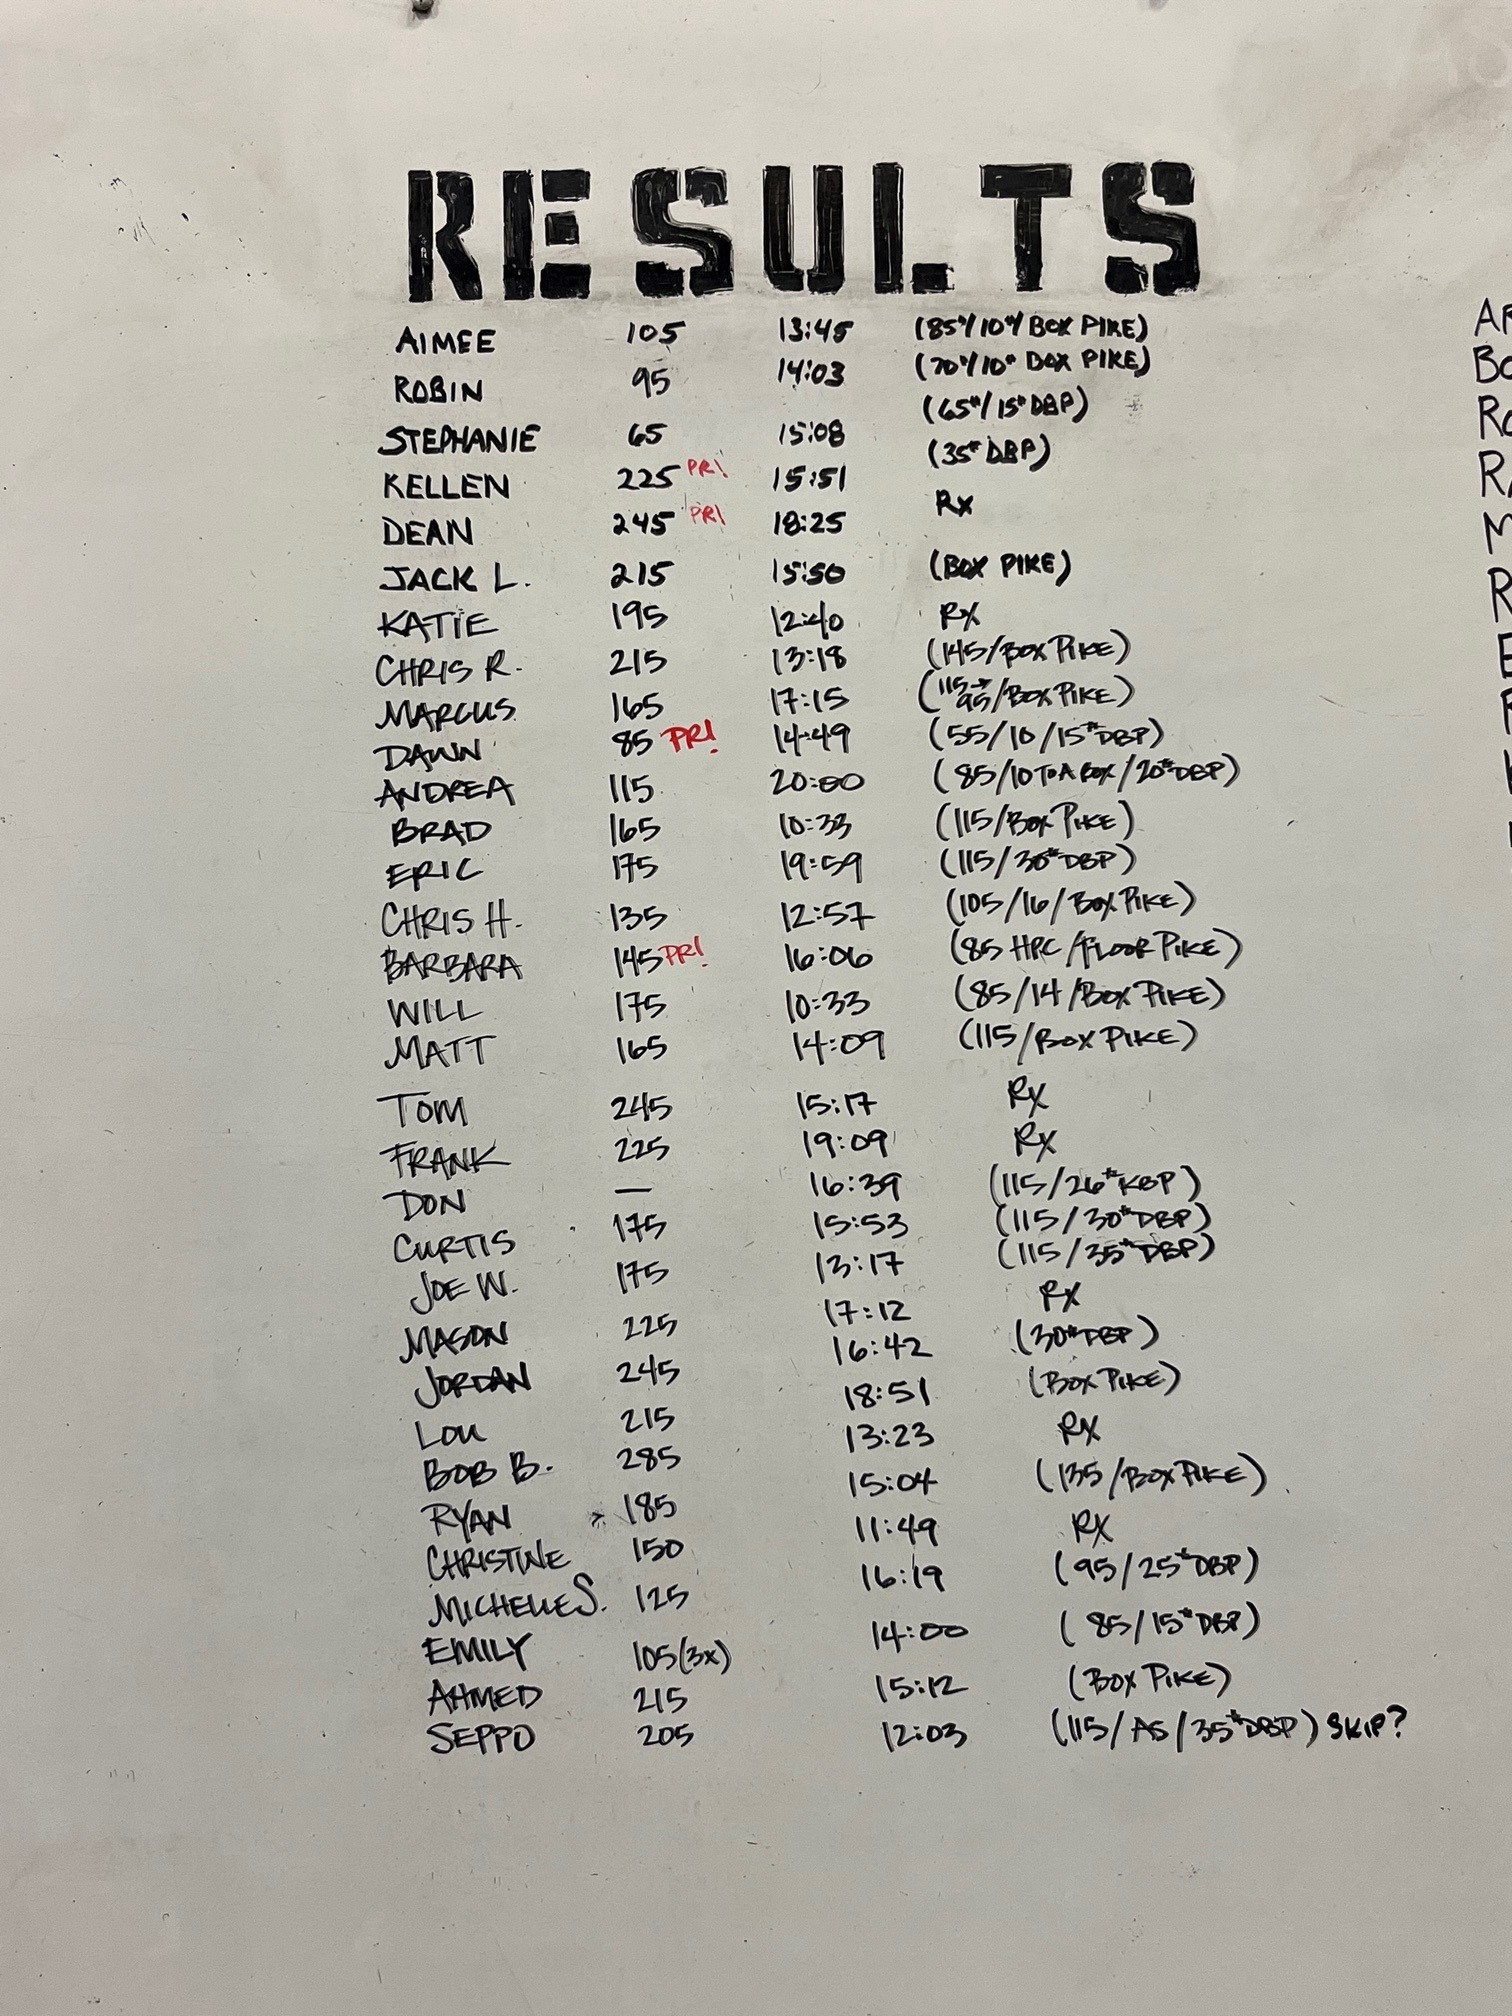 RESULTS
AIMEE 105 13:45 (85#/10#/BOX PIKE)
ROBIN 95 14:03 (70#/10# BOX PIKE)
STEPHANIE 65 15:08 (65#/15# DBP)
KELLEN 225 PR! 15:51 (35# DBP)
DEAN 245 PR! 18:25 RX
JACK L. 215 15:50 (BOX PIKE)
KATIE 195 12:40 RX
CHRIS R. 215 13:18 (145/BOX PIKE)
MARCUS 165 17:15 (115→95/BOX PIKE)
DAWN 85 PR! 14:49 (55/10/15# DBP)
ANDREA 115 20:00 (85/10 TO A BOX/20# DBP)
BRAD 165 10:33 (115/BOX PIKE)
ERIC 175 19:59 (115/30# DBP)
CHRIS H. 135 12:57 (105/16/BOX PIKE)
BARBARA 145 PR! 16:06 (85 HPC/FLOOR PIKE)
WILL 175 10:33 (85/14/BOX PIKE)
MATT 165 14:09 (115/BOX PIKE)
TOM 245 15:17 RX
FRANK 225 19:09 RX
DON — 16:39 (115/26# KBP)
CURTIS 175 15:53 (115/30# DBP)
JOE W. 175 13:17 (115/35# DBP)
MASON 225 17:12 RX
JORDAN 245 16:42 (30# DBP)
LOU 215 18:51 (BOX PIKE)
BOB B. 285 13:23 RX
RYAN 185 15:04 (135/BOX PIKE)
CHRISTINE 150 11:49 RX
MICHELLE S. 125 16:19 (95/25# DBP)
EMILY 105 (3x) 14:00 (85/15# DBP)
AHMED 215 15:12 (BOX PIKE)
SEPPO 205 12:03 (115/AS/35# DBP) SKIP?